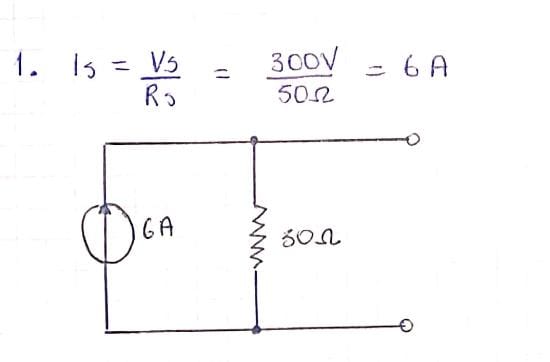 1. Is = Vs/Rs = 300V/50Ω = 6 A
6A
50Ω